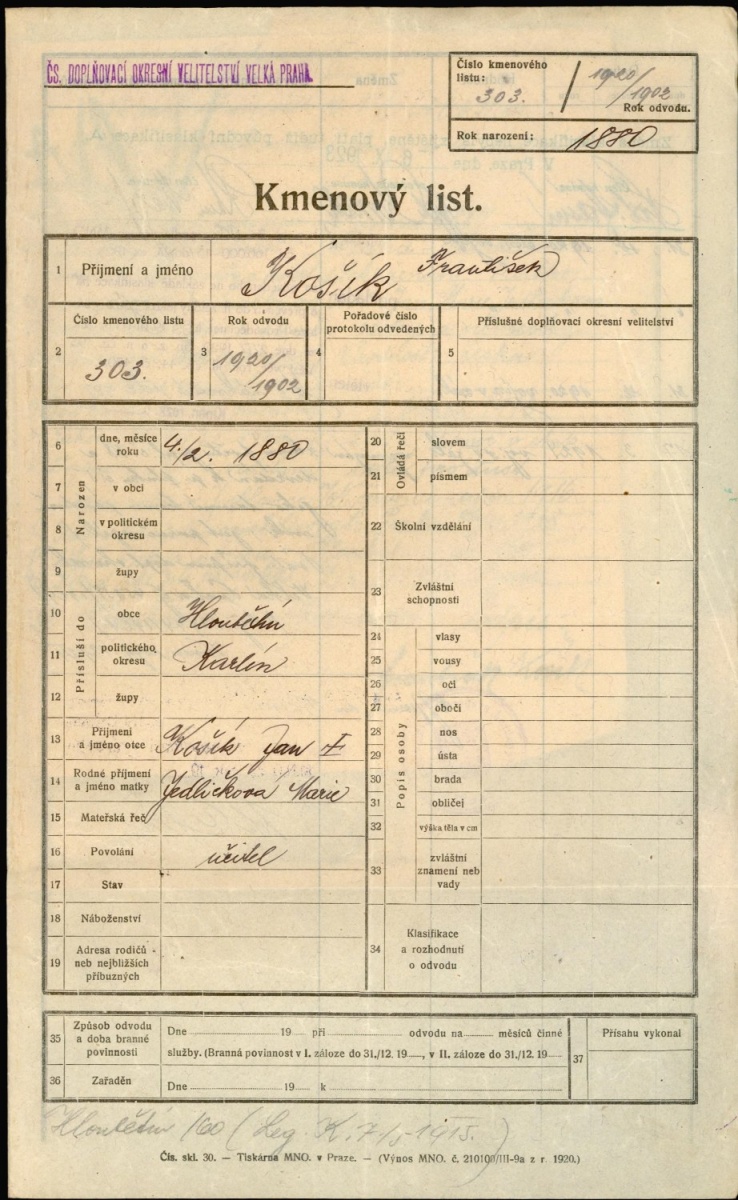 ČS. DOPLŇOVACÍ OKRESNÍ VELITELSTVÍ VELKÁ PRAHA.
Číslo kmenového listu: 303. / 1920/1902 Rok odvodu.
Rok narození: 1880
Kmenový list.
1 Příjmení a jméno Košík František
2 Číslo kmenového listu 303.
3 Rok odvodu 1920/1902
4 Pořadové číslo protokolu odvedených
5 Příslušné doplňovací okresní velitelství
Narozen
6 dne, měsíce roku 4./2. 1880
7 v obci
8 v politickém okresu
9 župy
Přísluší do
10 obce Hloubětín
11 politického okresu Karlín
12 župy
13 Příjmení a jméno otce Košík Jan †
14 Rodné příjmení a jméno matky Jedličková Marie
15 Mateřská řeč
16 Povolání učitel
17 Stav
18 Náboženství
19 Adresa rodičů neb nejbližších příbuzných
Ovládá řeči
20 slovem
21 písmem
22 Školní vzdělání
23 Zvláštní schopnosti
Popis osoby
24 vlasy
25 vousy
26 oči
27 obočí
28 nos
29 ústa
30 brada
31 obličej
32 výška těla v cm
33 zvláštní znamení neb vady
34 Klasifikace a rozhodnutí o odvodu
35 Způsob odvodu a doba branné povinnosti
Dne 19 při odvodu na měsíců činné
služby. (Branná povinnost v I. záloze do 31./12. 19, v II. záloze do 31./12. 19
36 Zařaděn Dne 19 k
37 Přísahu vykonal
Hloubětín 160 (Leg. K. 7/5 1915.)
Čís. skl. 30. — Tiskárna MNO. v Praze. — (Výnos MNO. č. 210100/III-9a z r. 1920.)